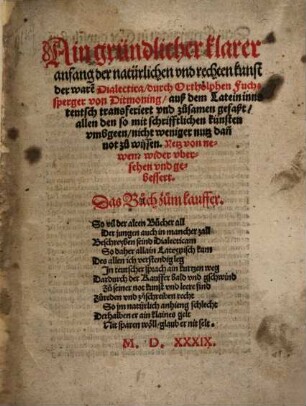 Ain gründlicher klarer
anfang der natürlichen vnd rechten kunst
der warē Dialectica/durch Ortholphen Fuch-
sperger von Ditmoning/auß dem Latein inns
teutsch transferiert vnd zůsamen gefaßt/
allen den so mit schrifftlichen künsten
vmbgeen/nicht weniger nutz dañ
not zů wissen. Netz von ne-
wem wider vber-
sehen vnd ge-
bessert.
Das Bůch zům kauffer.
So vil der alten Bücher all
Der jungen auch in mancher zall
Beschreyben seind Dialecticam
So daher allain Lateinisch kam
Des allen ich verstendig leg
In teutscher sprach ain kurtzen weg
Dardurch der Kauffer bald vnd gschwind
Zů seiner not kunst vnd leere find
Zůreden vnd zůschreiben recht
So im natürlich anhieng schlecht
Derhalben er ain klaines gelt
Nit sparen wöll/glaub er nit felt.
M. D. XXXIX.